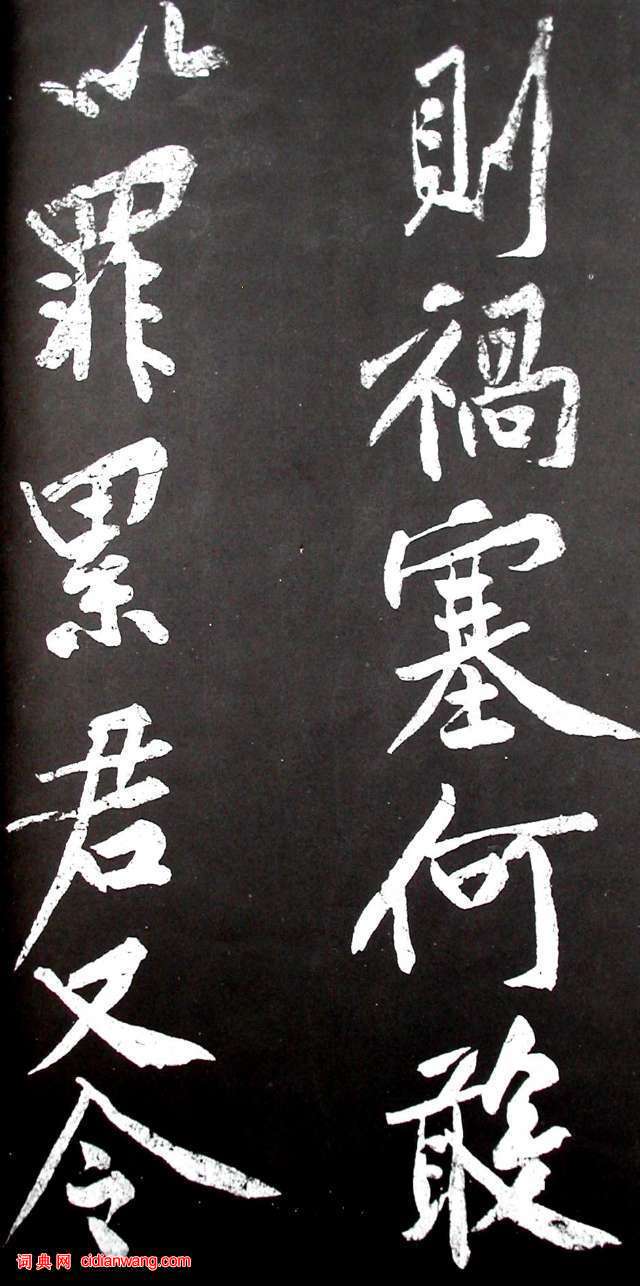 則禍塞何敢
以罪累君又令
词典网 cidianwang.com